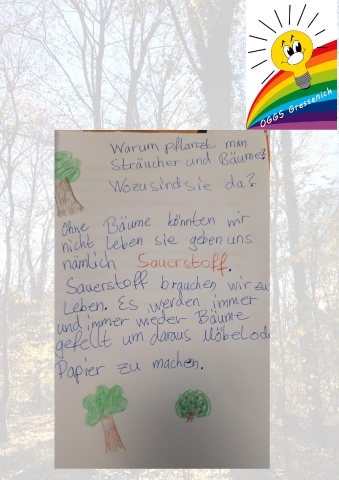 OGGS Gressenich
Warum pflanzt man
Sträucher und Bäume?
Wozu sind sie da?
Ohne Bäume könnten wir
nicht Leben sie geben uns
nämlich Sauerstoff.
Sauerstoff brauchen wir zu
Leben. Es werden immer
und immer wieder Bäume
gefellt um daraus Möbel od
Papier zu machen.